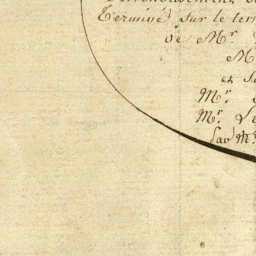 Terminé sur le ter
de Mr.
M
et S
Mr.
Mr. Le
par Mr.